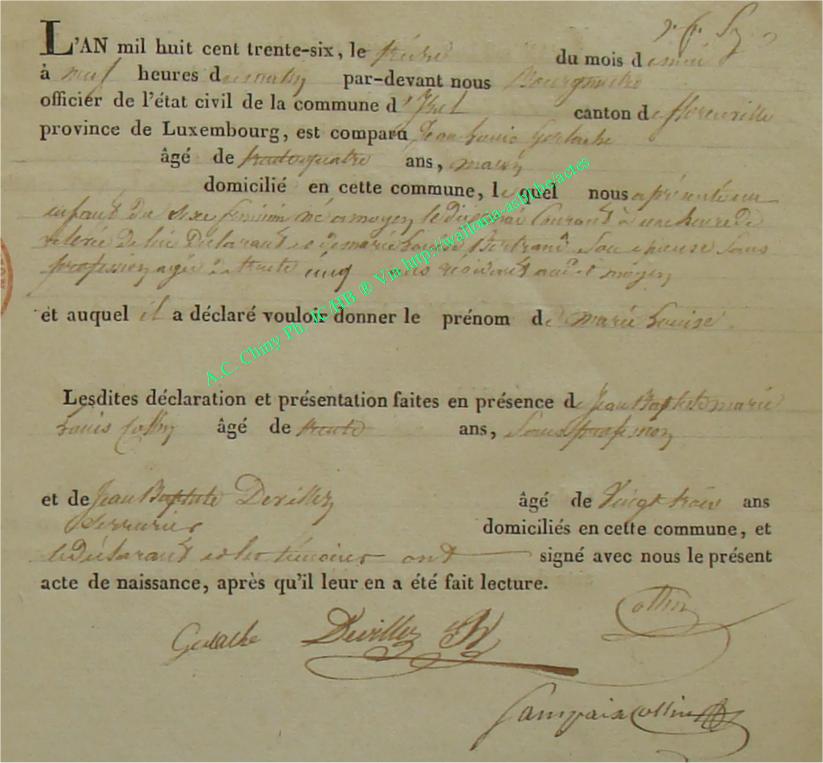 L'AN mil huit cent trente-six, le treize du mois de mai
à neuf heures du matin par-devant nous Bourgmestre
officier de l'état civil de la commune d'Izel canton de florenville
province de Luxembourg, est comparu Jean Louis Gerlache
âgé de trente quatre ans,
domicilié en cette commune, le quel nous a présenté un
enfant du sexe féminin né a moyen le dix mai Courant à une heure de
relevée de lui Déclarant et de marie Louise Bertrand Son epouse Sans
profession agée de trente cinq ans residents audit moyen
et auquel il a déclaré vouloir donner le prénom de marie Louise
Lesdites déclaration et présentation faites en présence de Jean Baptiste marie
Louis Collin âgé de trente ans, Sans profession
et de Jean Baptiste Devillez âgé de Vingt trois ans
Serrurier domiciliés en cette commune, et
le déclarant et les témoins ont signé avec nous le présent
acte de naissance, après qu'il leur en a été fait lecture.
Collin
Gerlache Devillez
Collin
A.C. Chiny Ph. JCHB ® Via http://wallonia-asbl.be/actes